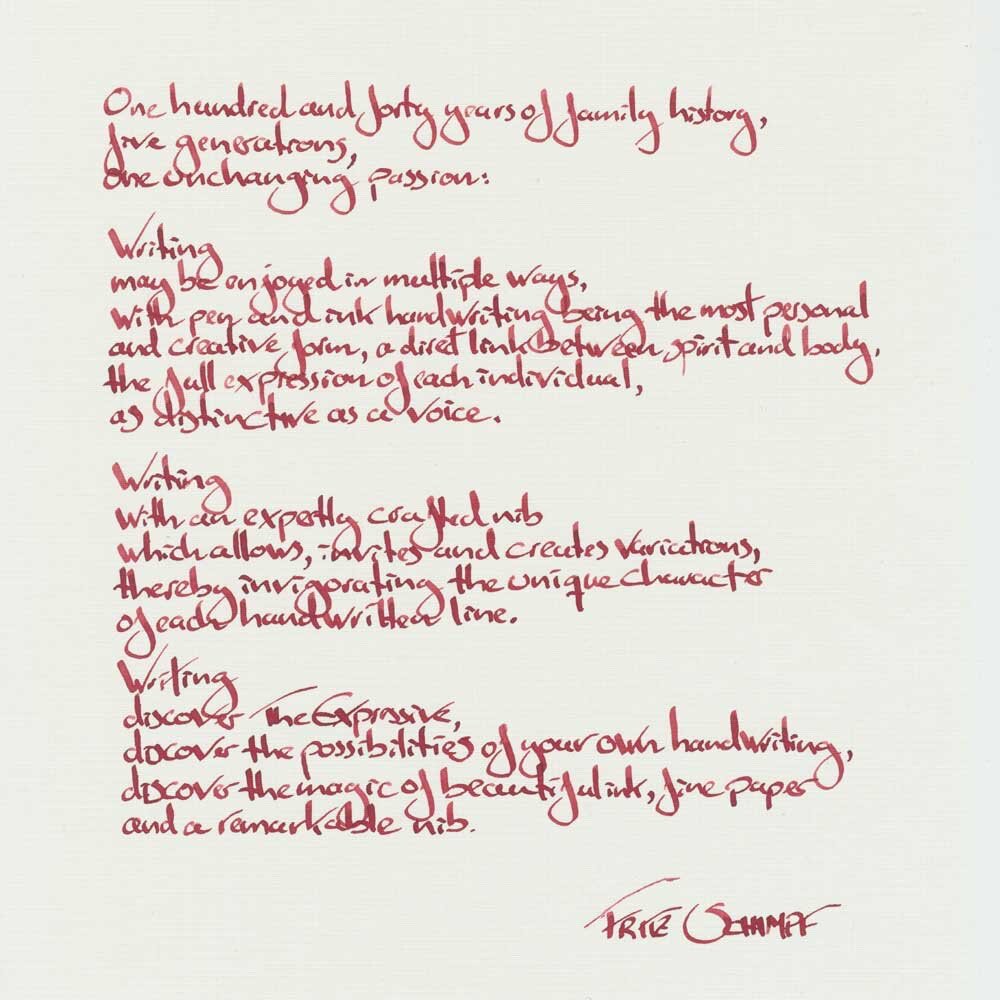 One hundred and forty years of family history,
five generations,
one unchanging passion:
Writing
may be enjoyed in multiple ways,
with pen and ink handwriting being the most personal
and creative form, a diret link between spirit and body,
the full expression of each individual,
as distinctive as a voice.
Writing
with an expertly crafted nib
which allows, invites and creates variations,
thereby invigorating the unique character
of each handwritten line.
Writing
discover The Expressive,
discover the possibilities of your own handwriting,
discover the magic of beautiful ink, fine paper
and a remarkable nib.
FRITZ SCHIMPF